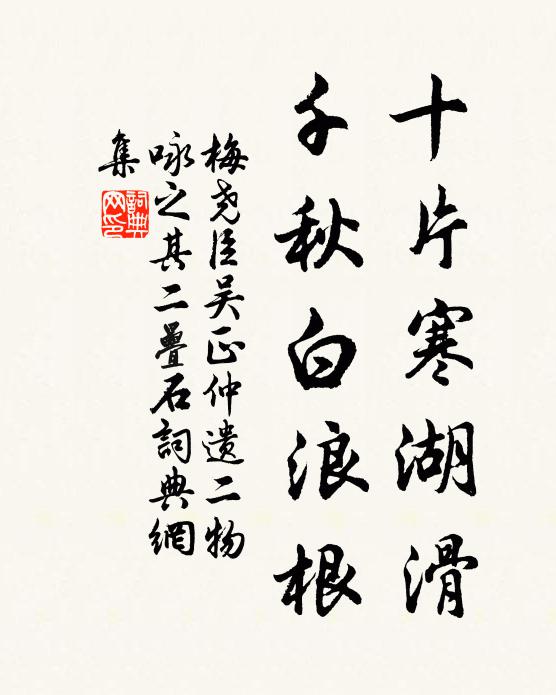 十片寒湖滑
千秋白浪根
梅尧臣吴正仲遗二物
咏之其二疊石詞典網
集
詞典網印